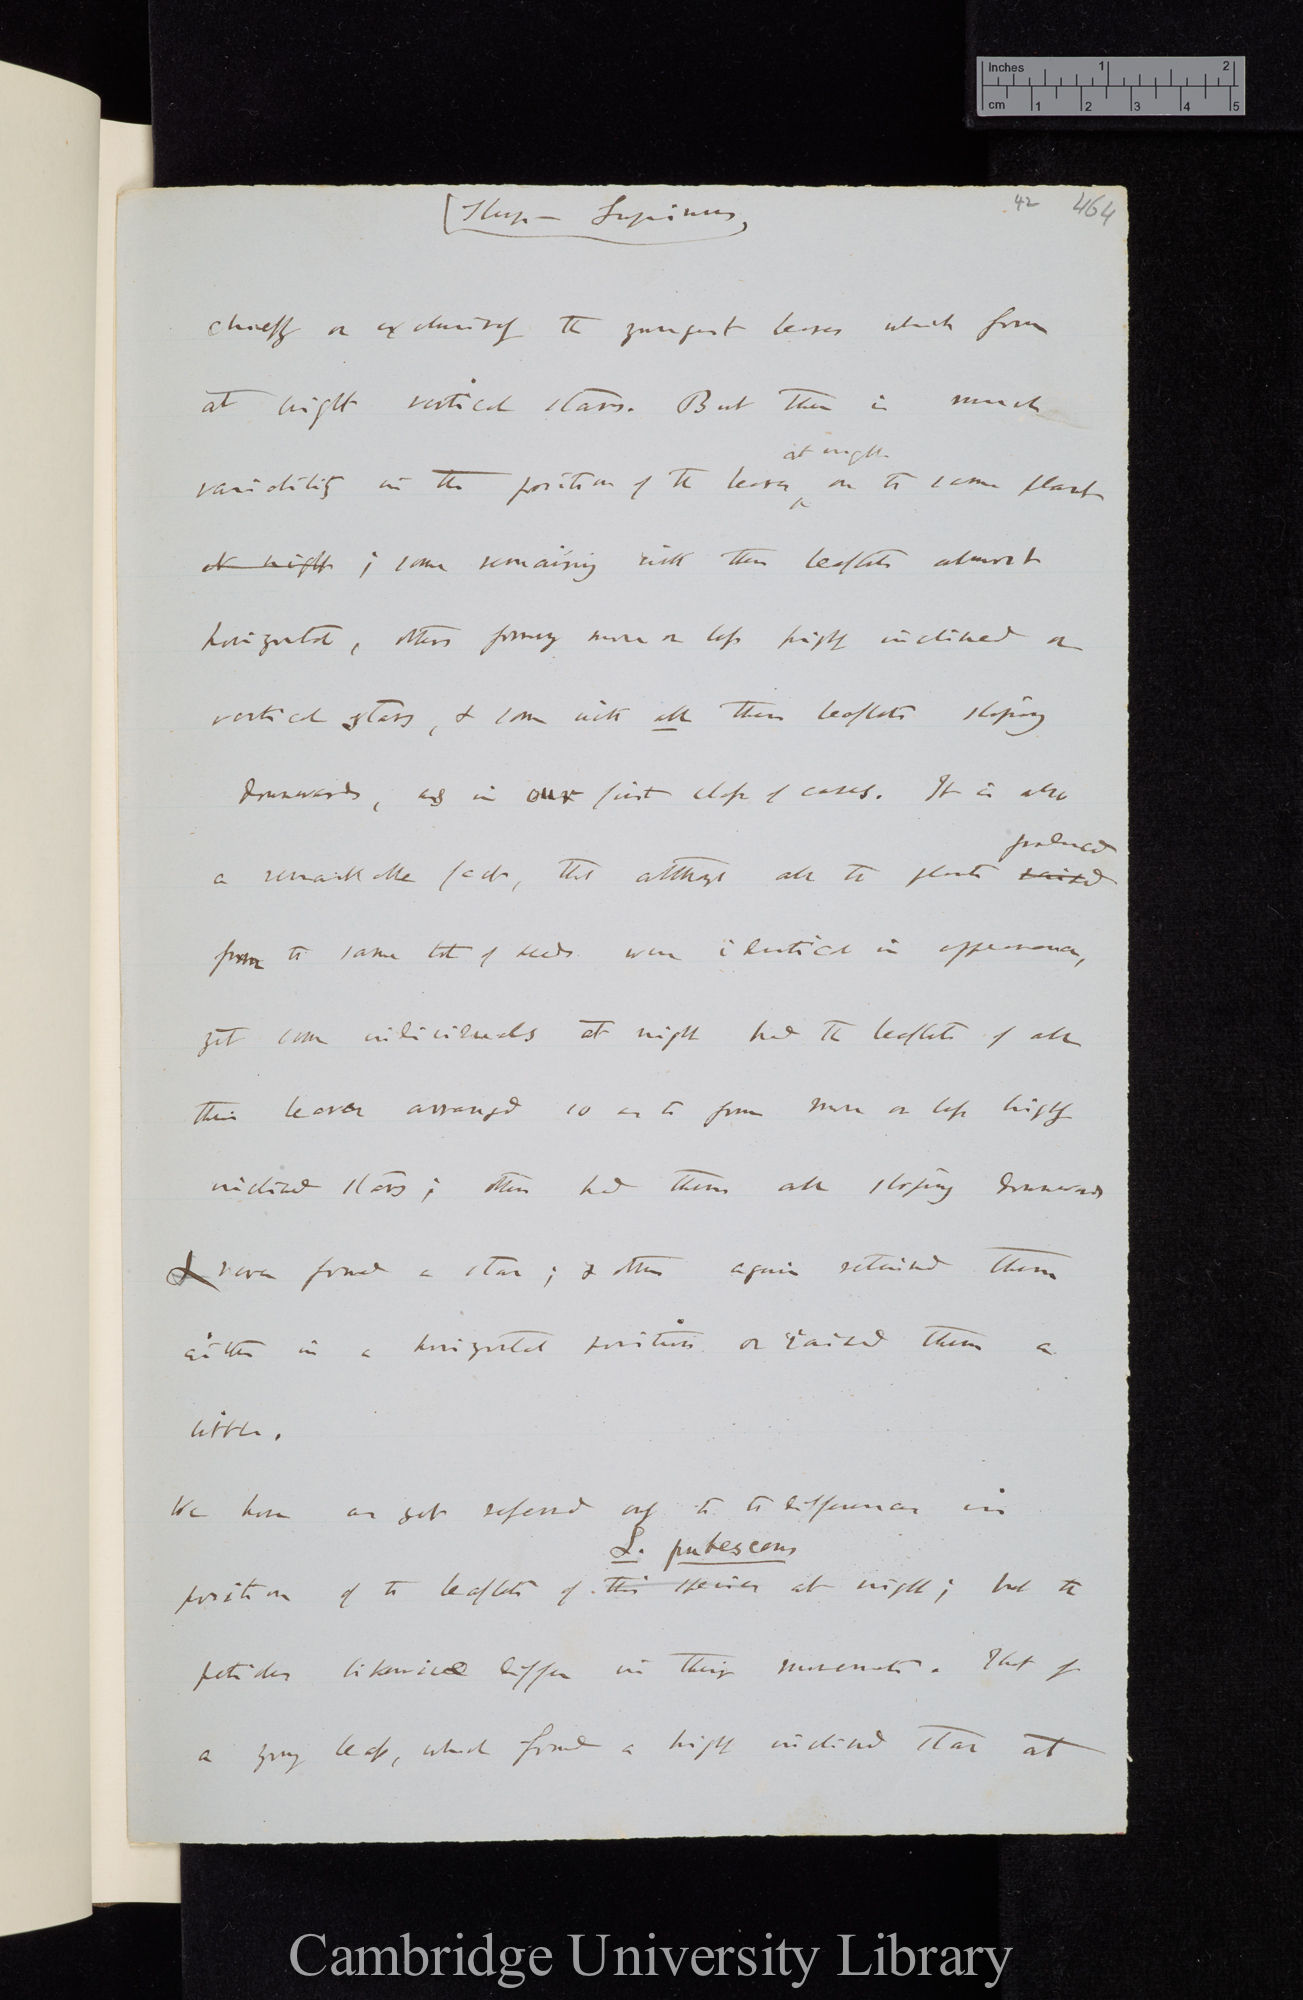 Inches 1 2
cm 1 2 3 4 5
42 464
(Sleep — Lupinus,
chiefly or exclusively the youngest leaves which form
at night vertical stars. But there is much
at night
variability in the position of the leaves on the same plant
at night ; some remaining with their leaflets almost
horizontal, others forming more or less highly inclined or
vertical stars, & some with all their leaflets sloping
downwards, as in our first class of cases. It is also
produced
a remarkable fact, that although all the plants raised
from the same lot of seeds were identical in appearance,
yet some individuals at night had the leaflets of all
their leaves arranged so as to form more or less highly
inclined stars ; others had them all sloping downwards
& never formed a star ; & others again retained them
either in a horizontal position or raised them a
little.
We have as yet referred only to the differences in
L. pubescens
position of the leaflets of this species at night ; but the
petioles likewise differ in their movements. That of
a young leaf, which formed a highly inclined star at
Cambridge University Library